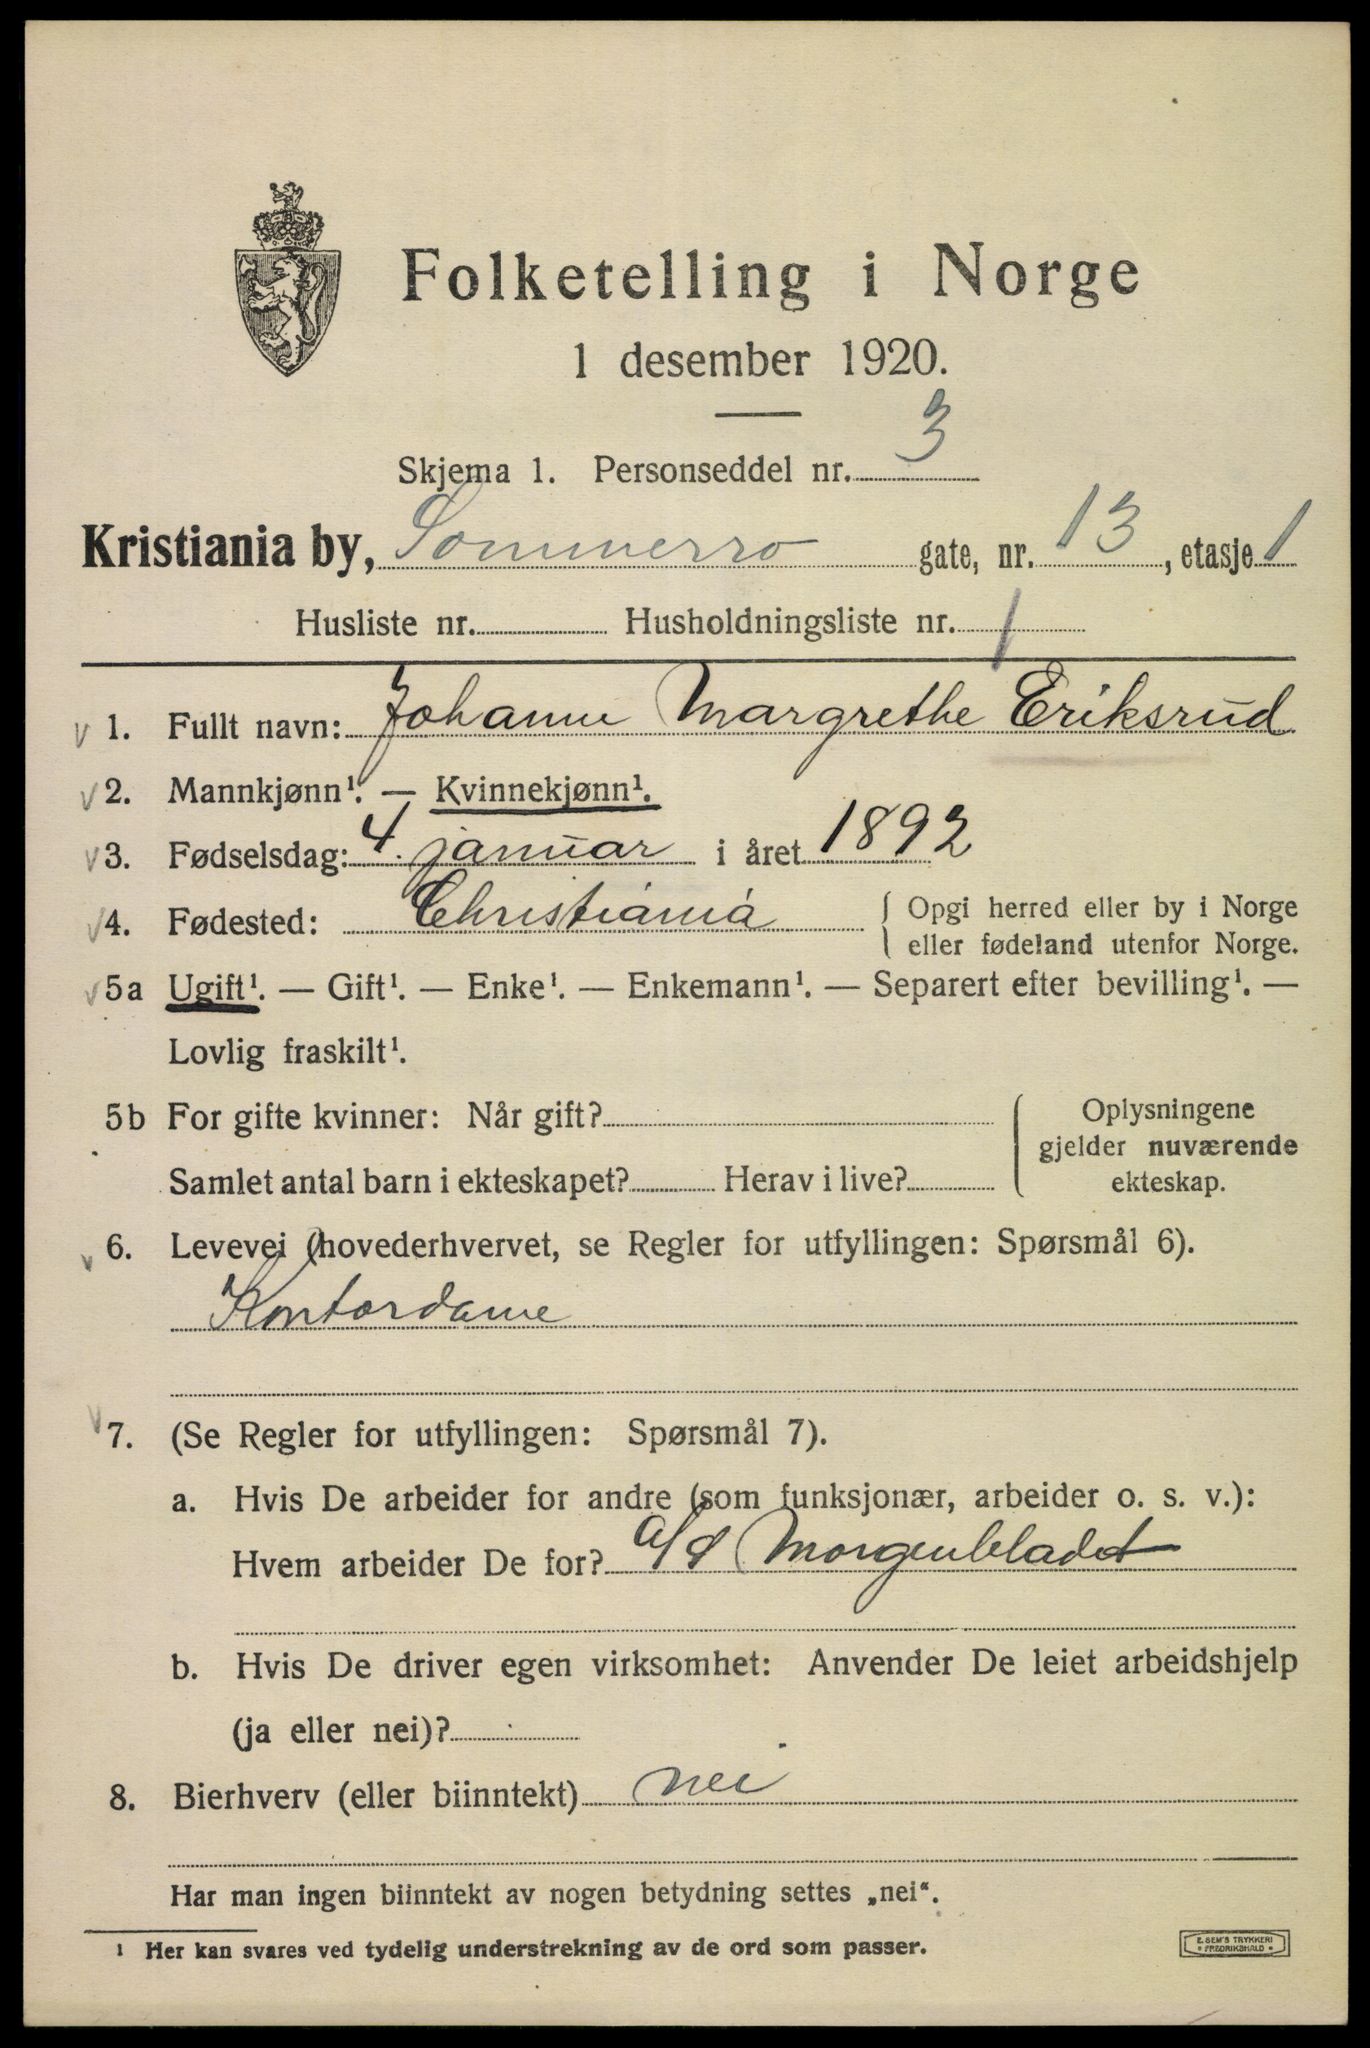 Folketelling i Norge
1 desember 1920.
Skjema 1. Personseddel nr. 3
Kristiania by, Sommerro gate, nr. 13, etasje 1
Husliste nr. Husholdningsliste nr. 1
v 1. Fullt navn: Johanne Margrethe Eriksrud
v 2. Mannkjønn¹. — Kvinnekjønn¹.
v 3. Fødselsdag: 4. januar i året 1892
v 4. Fødested: Christiania { Opgi herred eller by i Norge
eller fødeland utenfor Norge.
v 5a Ugift¹. — Gift¹. — Enke¹. — Enkemann¹. — Separert efter bevilling¹. —
Lovlig fraskilt¹.
5b For gifte kvinner: Når gift?
Samlet antal barn i ekteskapet? Herav i live?
{ Oplysningene
gjelder nuværende
ekteskap.
v 6. Levevei (hovederhvervet, se Regler for utfyllingen: Spørsmål 6).
Kontordame
v 7. (Se Regler for utfyllingen: Spørsmål 7).
a. Hvis De arbeider for andre (som funksjonær, arbeider o. s. v.):
Hvem arbeider De for? a/s Morgenbladet
b. Hvis De driver egen virksomhet: Anvender De leiet arbeidshjelp
(ja eller nei)?
8. Bierhverv (eller biinntekt) nei
Har man ingen biinntekt av nogen betydning settes „nei“.
¹ Her kan svares ved tydelig understrekning av de ord som passer.
E. SEM'S TRYKKERI
FREDRIKSHALD